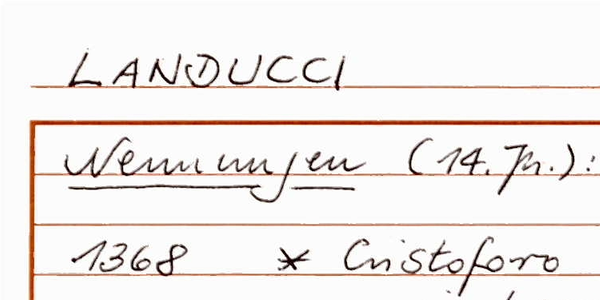 LANDUCCI
Nennungen (14. Jh.):
1368 * Cristoforo